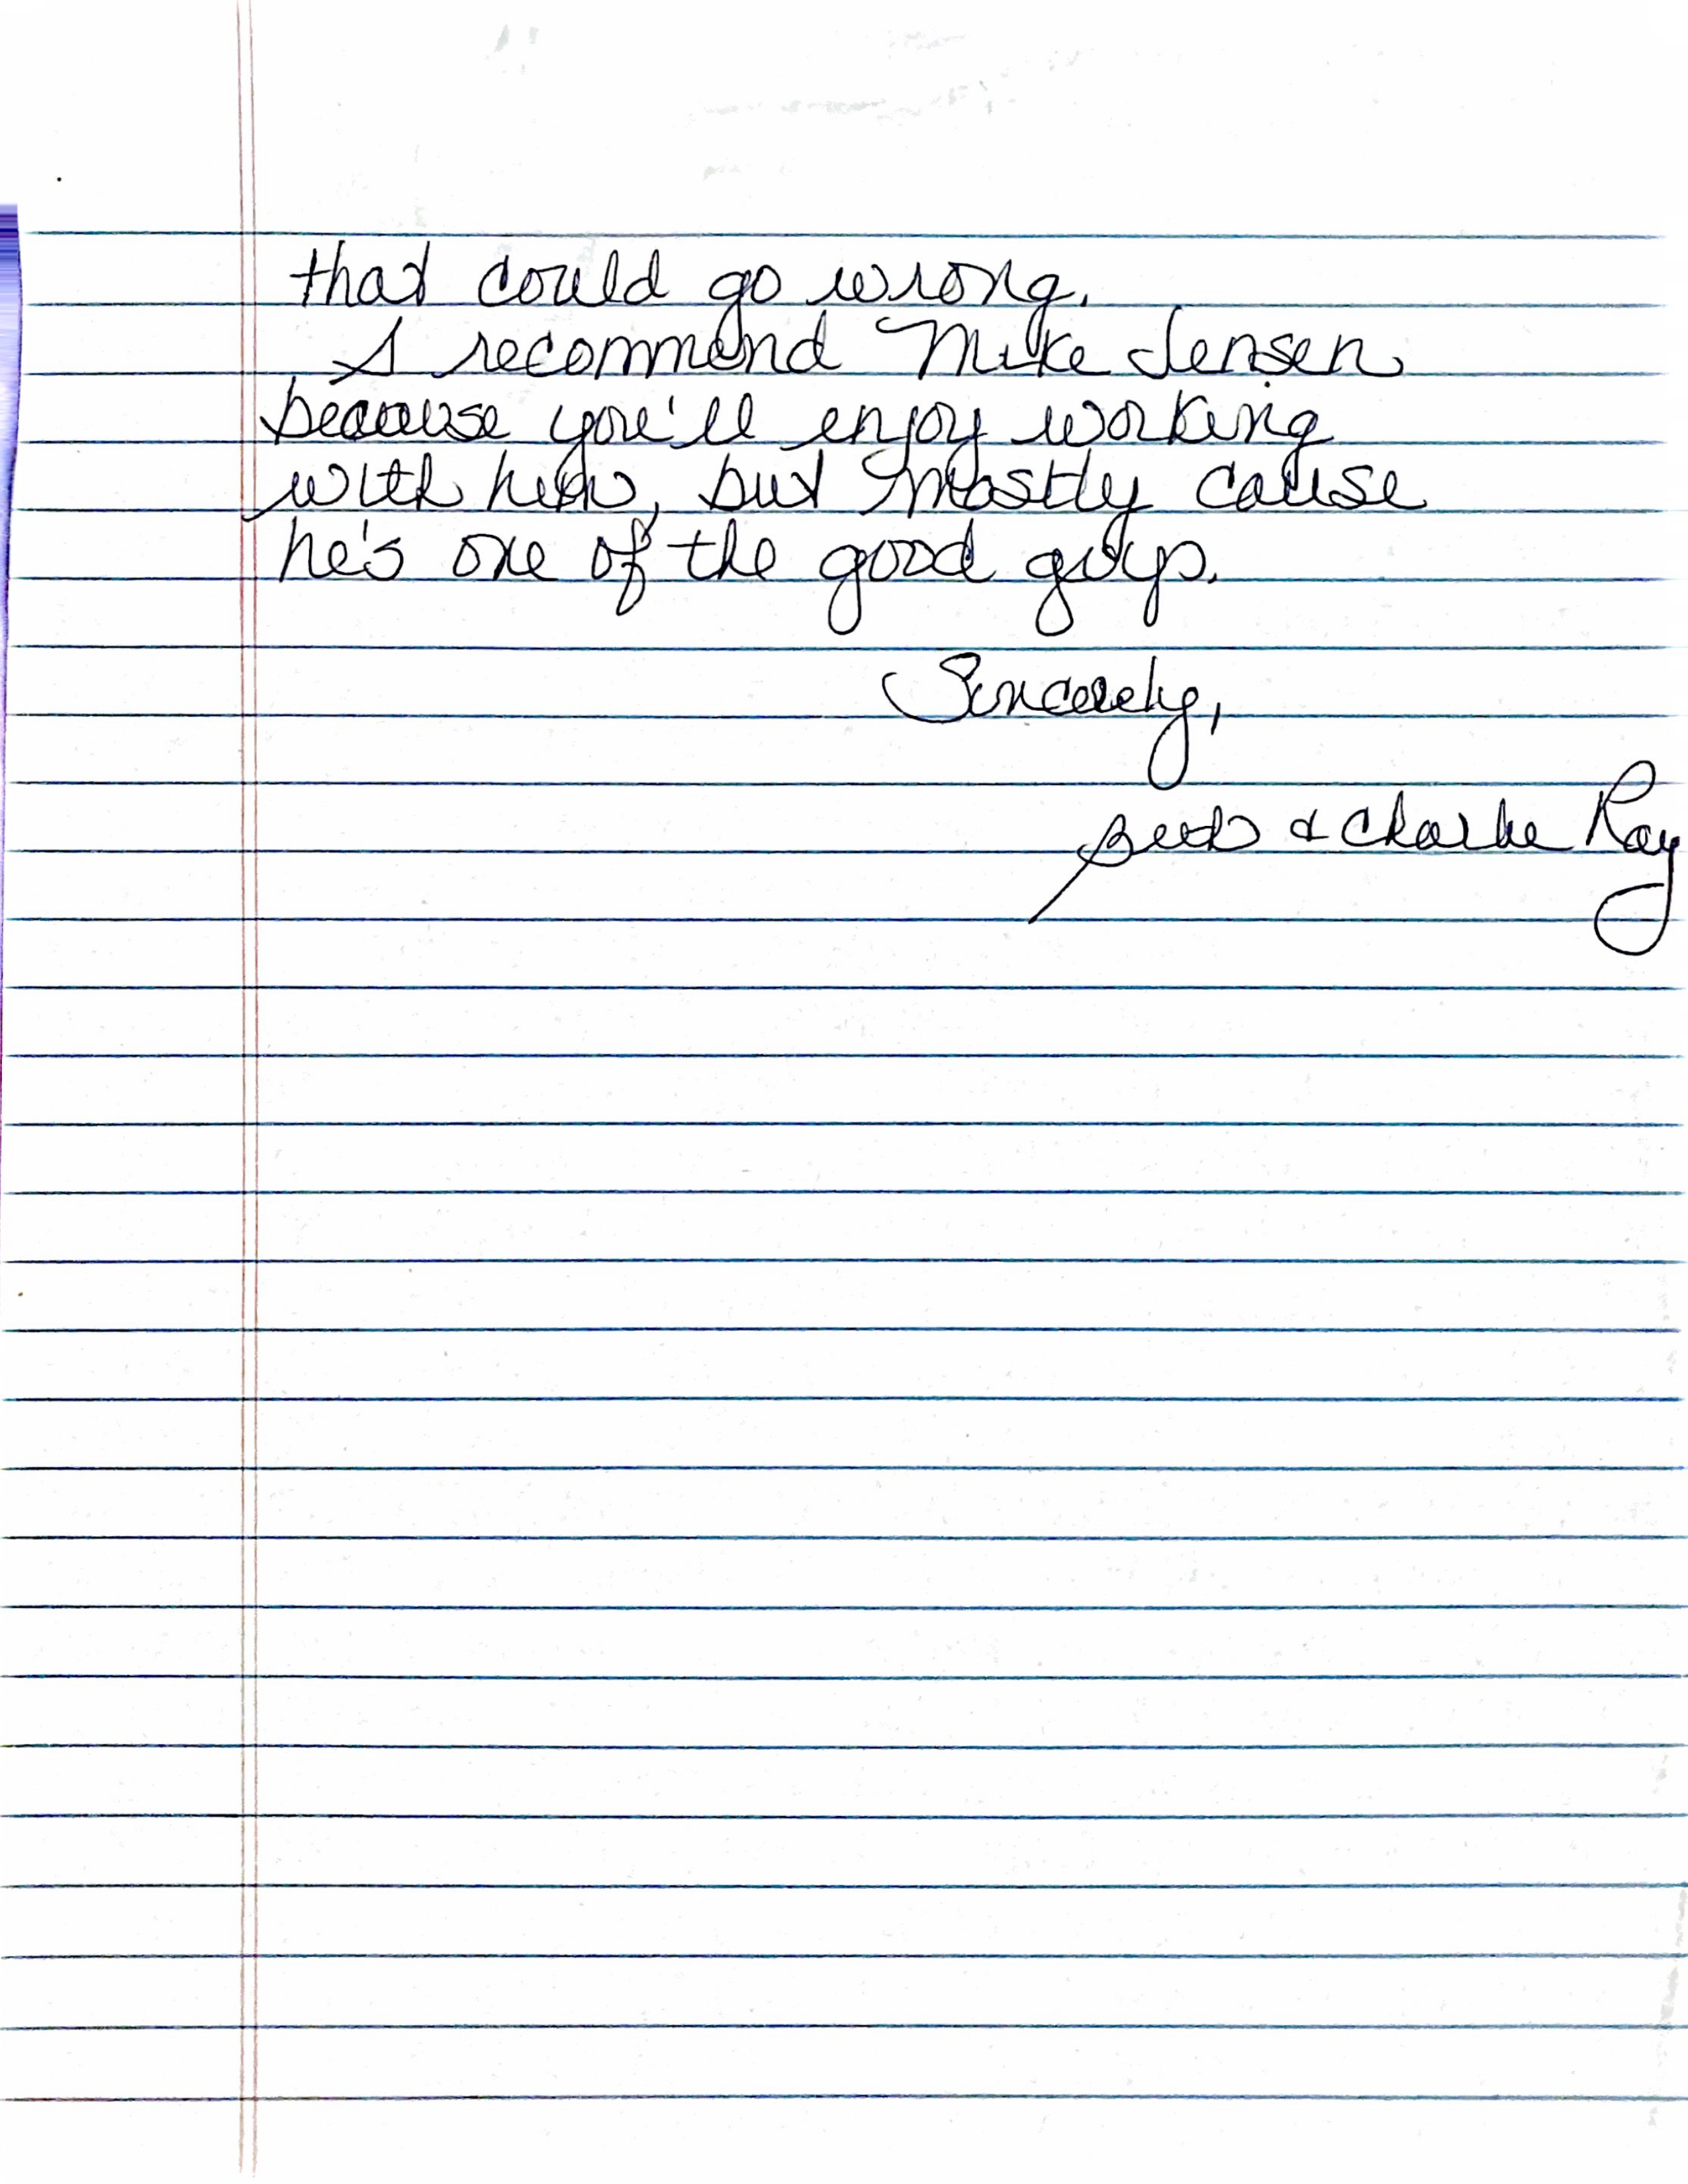 that could go wrong.
I recommend Mike Jensen
because you'll enjoy working
with him, but mostly cause
he's one of the good guys.
Sincerely,
& Charlie Ray